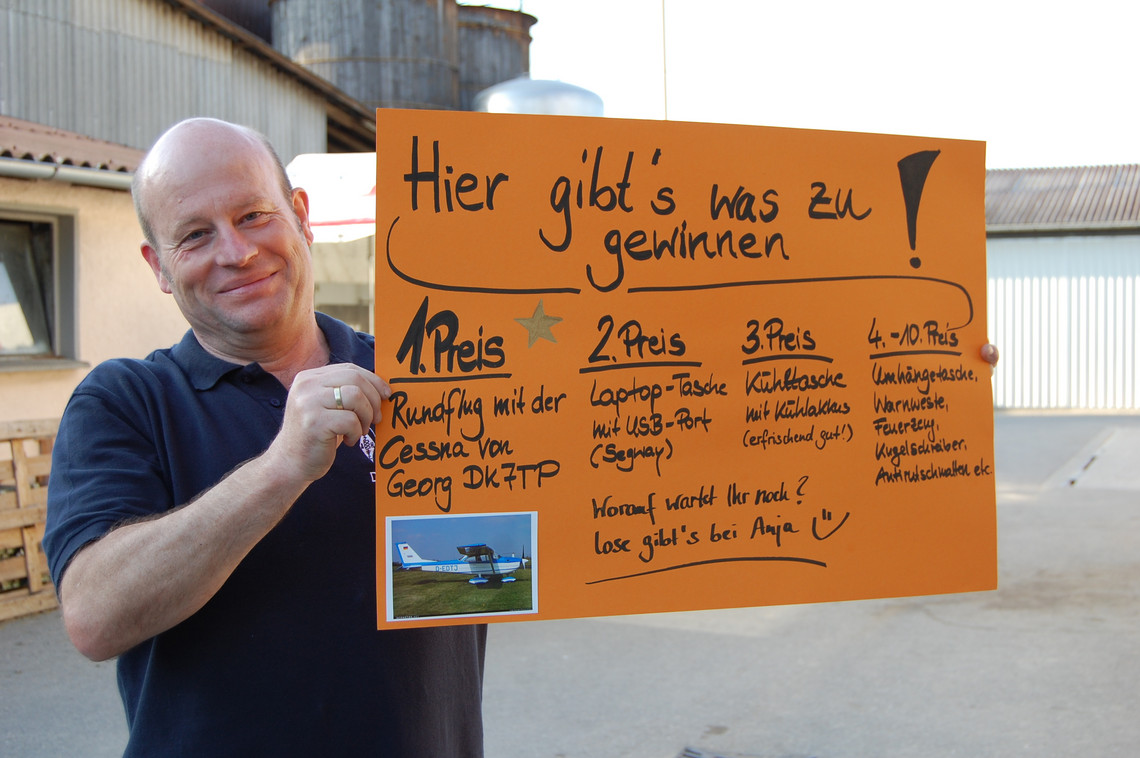 Hier gibt's was zu
gewinnen!
1. Preis
Rundflug mit der
Cessna von
Georg DK7TP
2. Preis
Laptop-Tasche
mit USB-Port
(Segway)
3. Preis
Kühltasche
mit Kühlakkus
(erfrischend gut!)
4.-10. Preis
Umhängetasche,
Warnweste,
Feuerzeug,
Kugelschreiber,
Antirutschmatten etc.
Worauf wartet Ihr noch?
Lose gibt's bei Anja